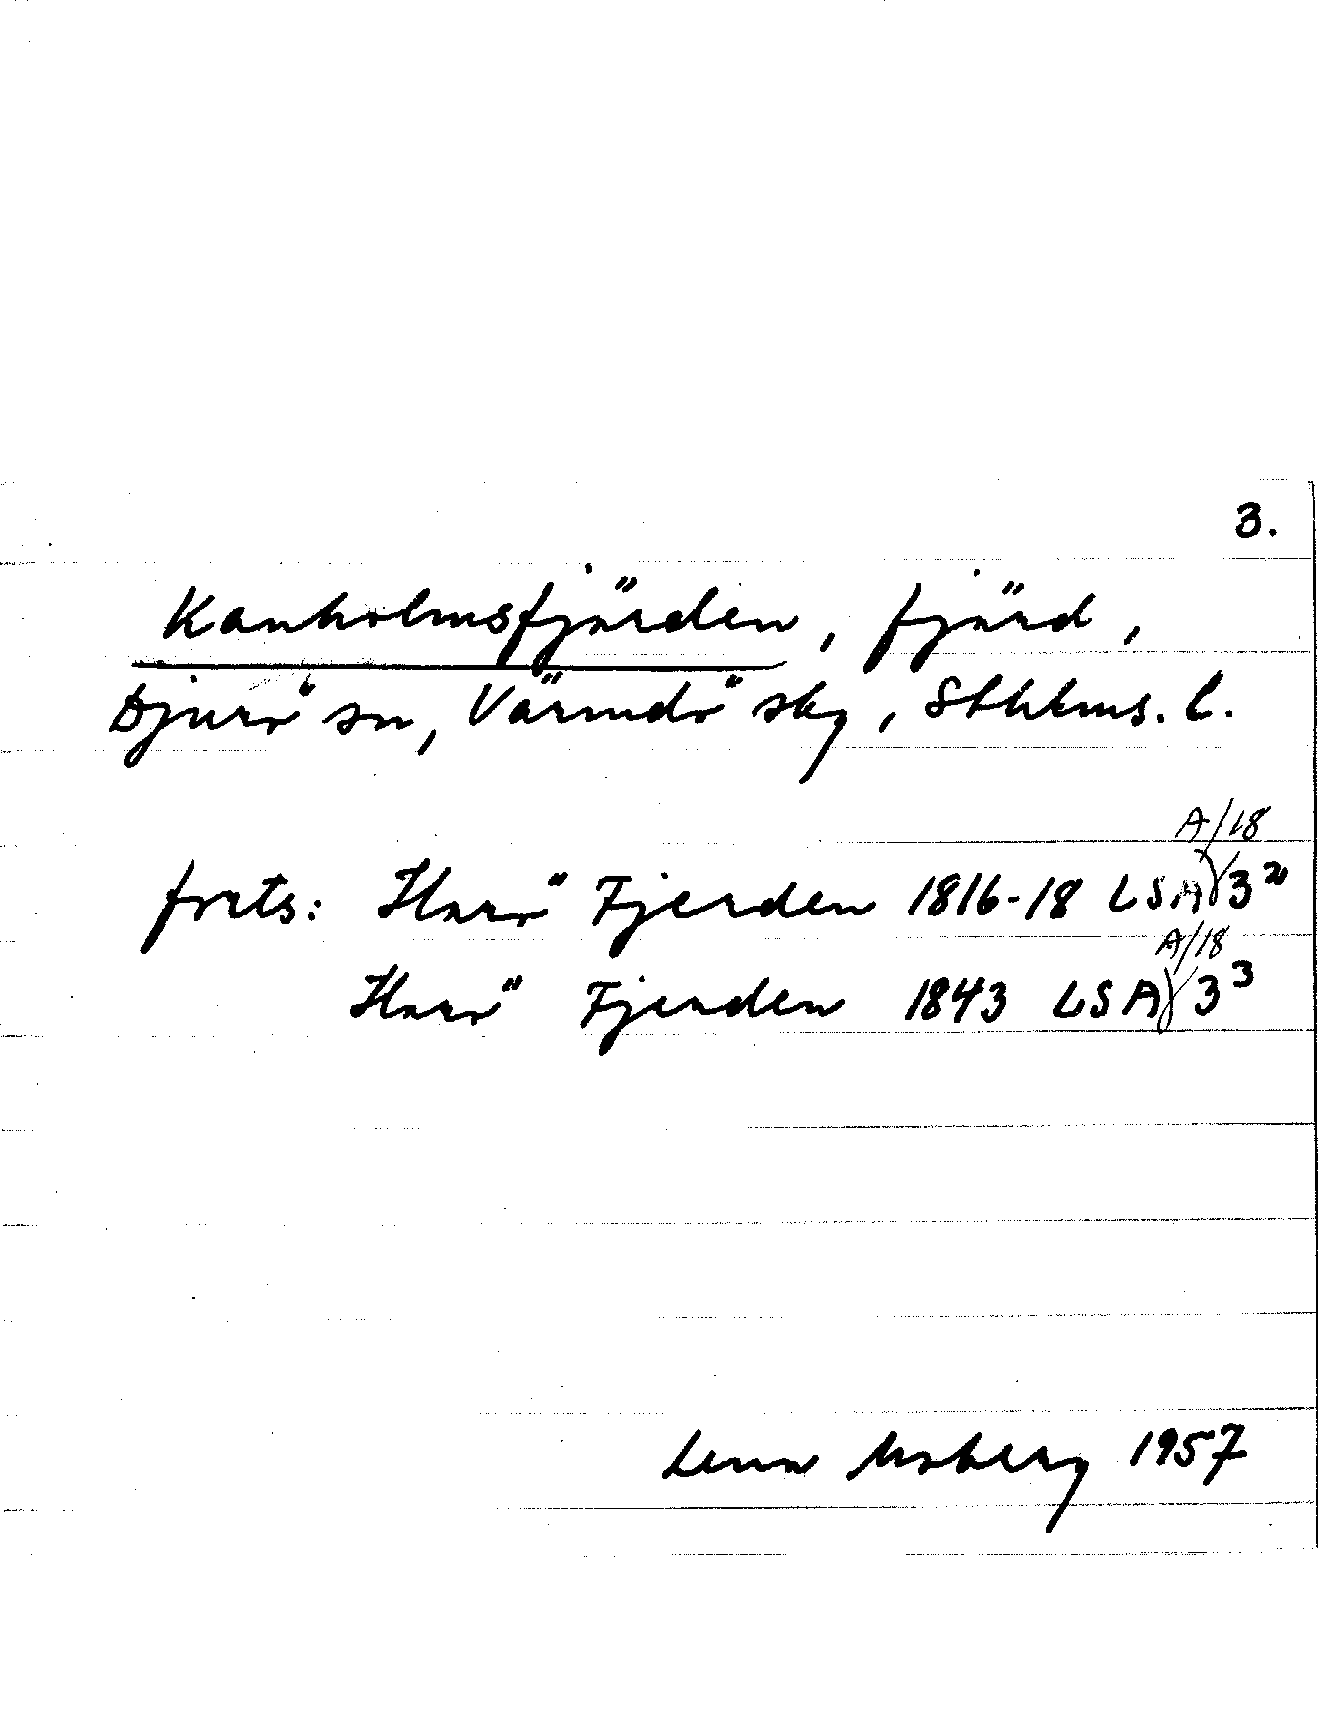 3.
Kanholmsfjärden, fjärd,
Djurö sn, Värmdö skg, Sthlms. l.
A/18
forts: Harö Fjerden 1816-18 LSA 3²
A/18
Harö Fjerden 1843 LSA 3³
Lena Moberg 1957